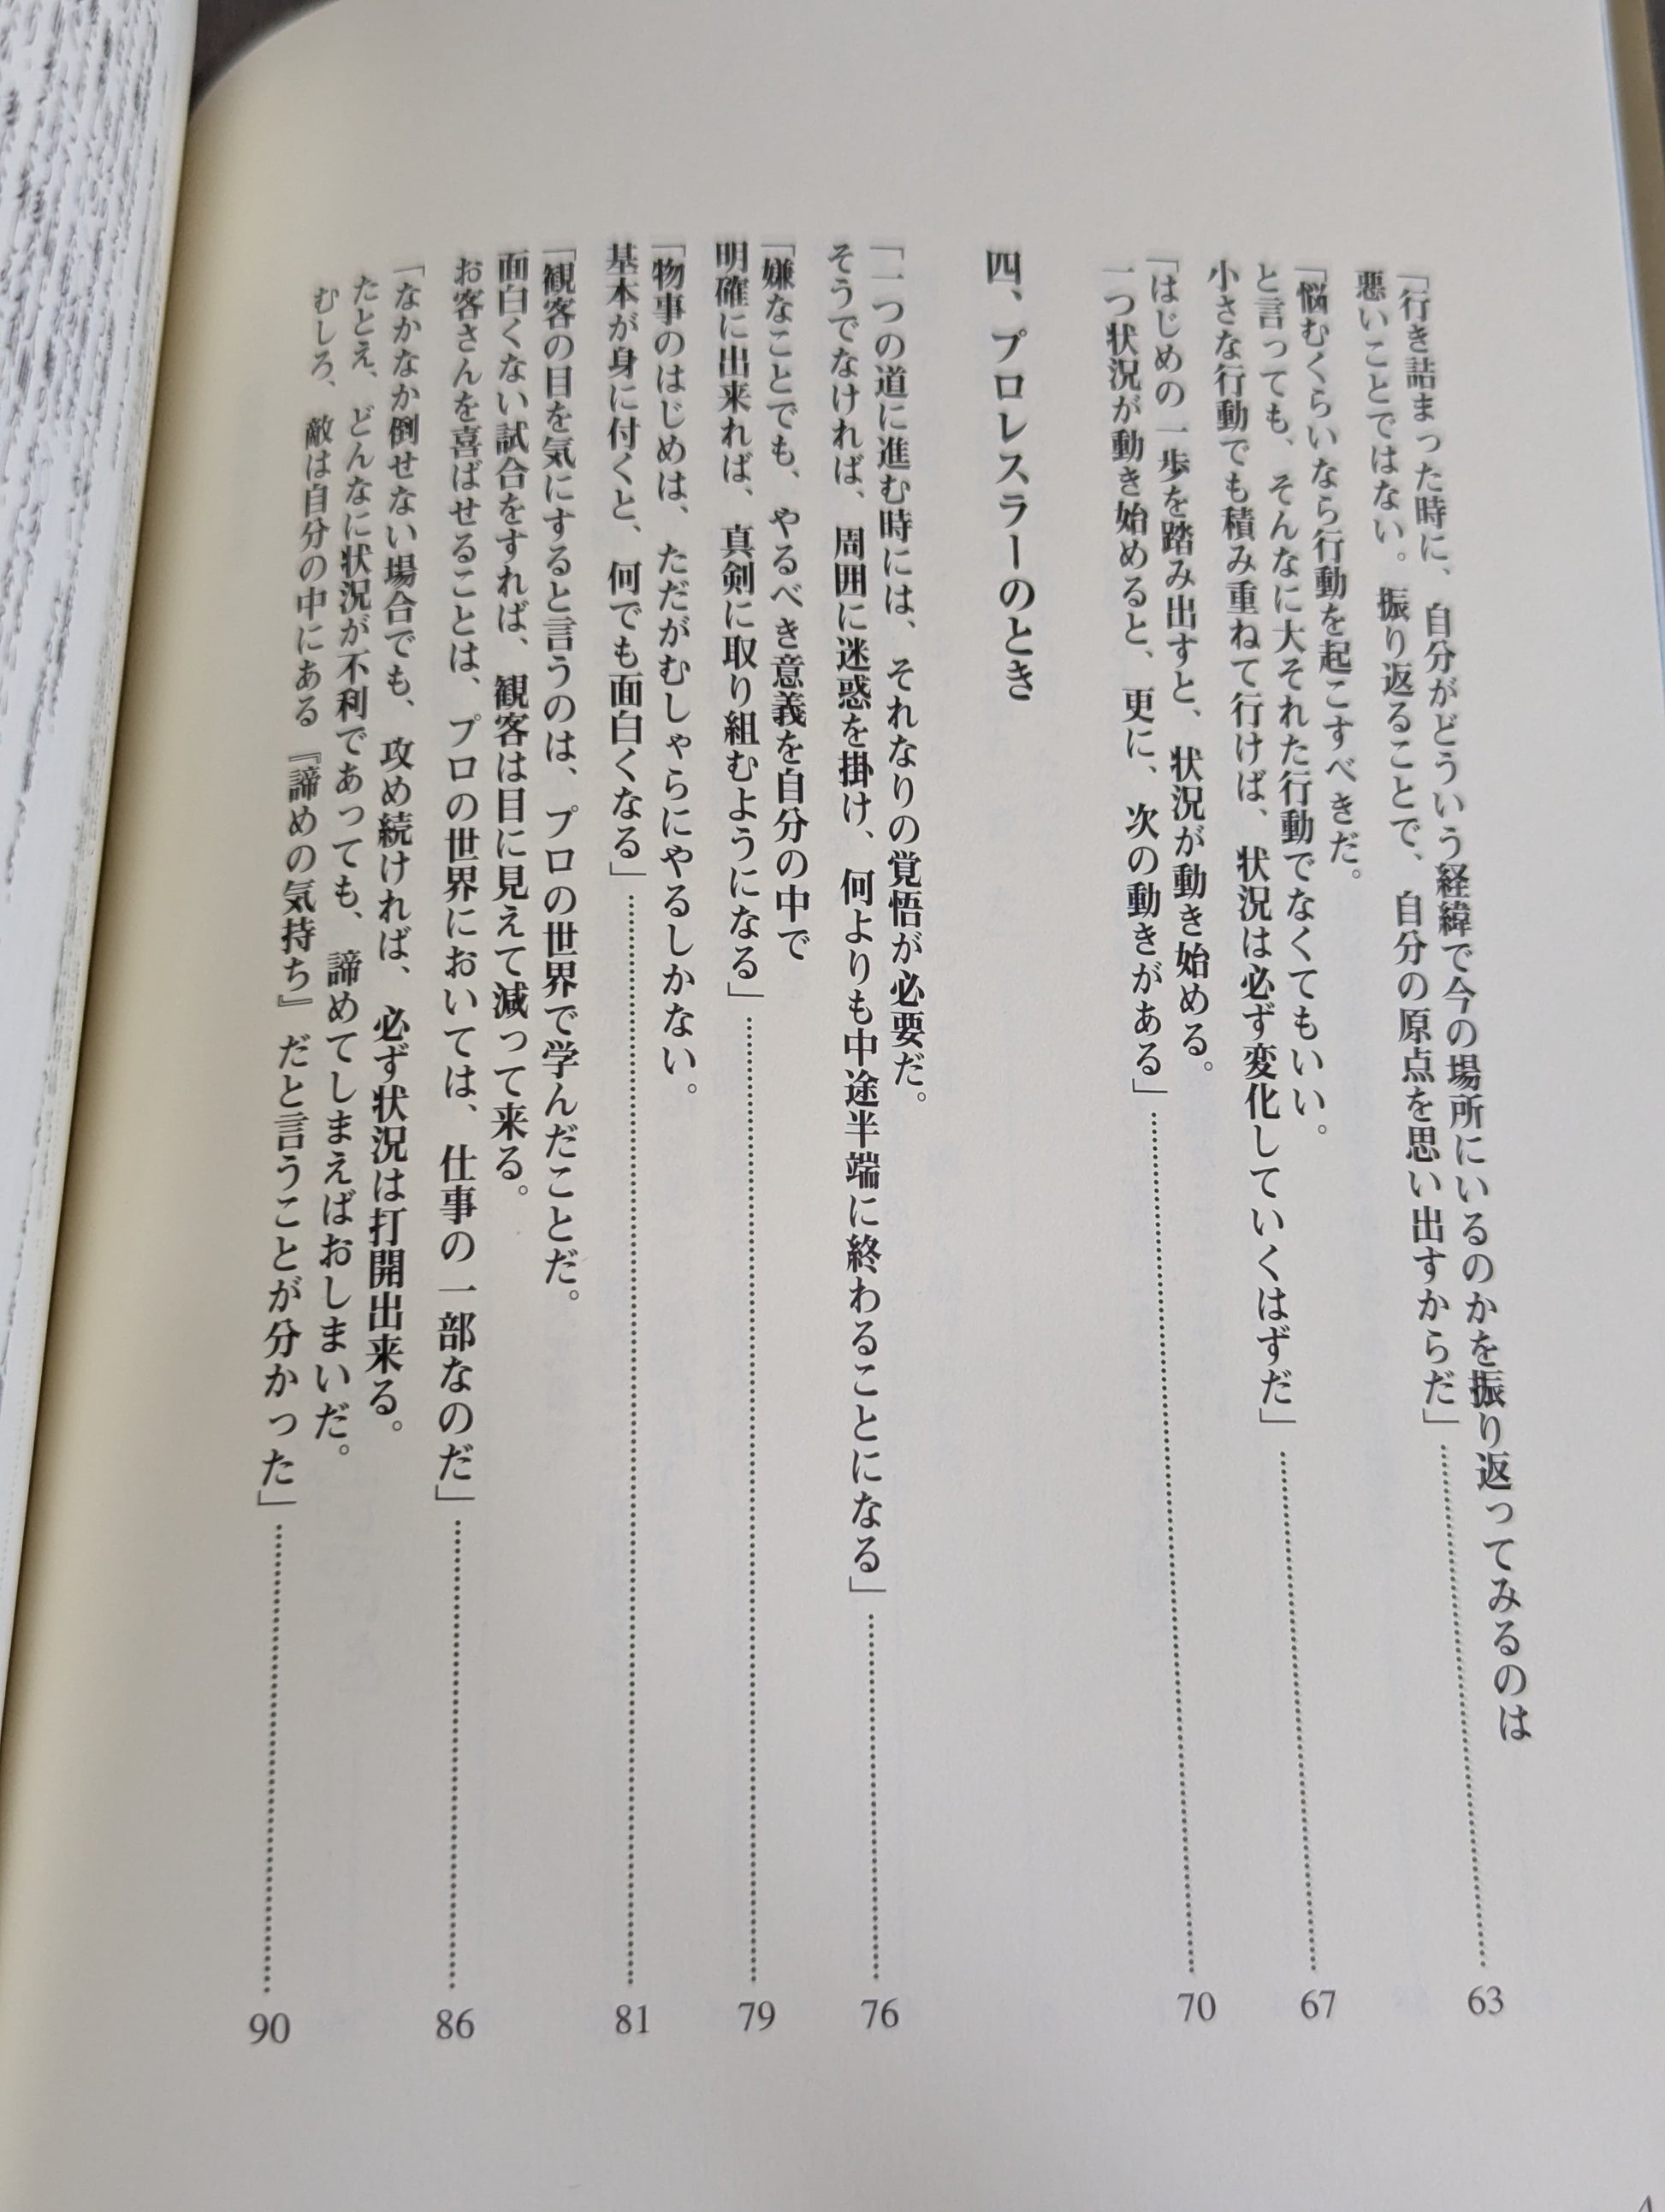 「行き詰まった時に、自分がどういう経緯で今の場所にいるのかを振り返ってみるのは
悪いことではない。振り返ることで、自分の原点を思い出すからだ」…………63
「悩むくらいなら行動を起こすべきだ。
と言っても、そんなに大それた行動でなくてもいい。
小さな行動でも積み重ねて行けば、状況は必ず変化していくはずだ」…………67
「はじめの一歩を踏み出すと、状況が動き始める。
一つ状況が動き始めると、更に、次の動きがある」…………70
四、プロレスラーのとき
「一つの道に進む時には、それなりの覚悟が必要だ。
そうでなければ、周囲に迷惑を掛け、何よりも中途半端に終わることになる」…………76
「嫌なことでも、やるべき意義を自分の中で
明確に出来れば、真剣に取り組むようになる」…………79
「物事のはじめは、ただがむしゃらにやるしかない。
基本が身に付くと、何でも面白くなる」…………81
「観客の目を気にすると言うのは、プロの世界で学んだことだ。
面白くない試合をすれば、観客は目に見えて減って来る。
お客さんを喜ばせることは、プロの世界においては、仕事の一部なのだ」…………86
「なかなか倒せない場合でも、攻め続ければ、必ず状況は打開出来る。
たとえ、どんなに状況が不利であっても、諦めてしまえばおしまいだ。
むしろ、敵は自分の中にある『諦めの気持ち』だと言うことが分かった」…………90